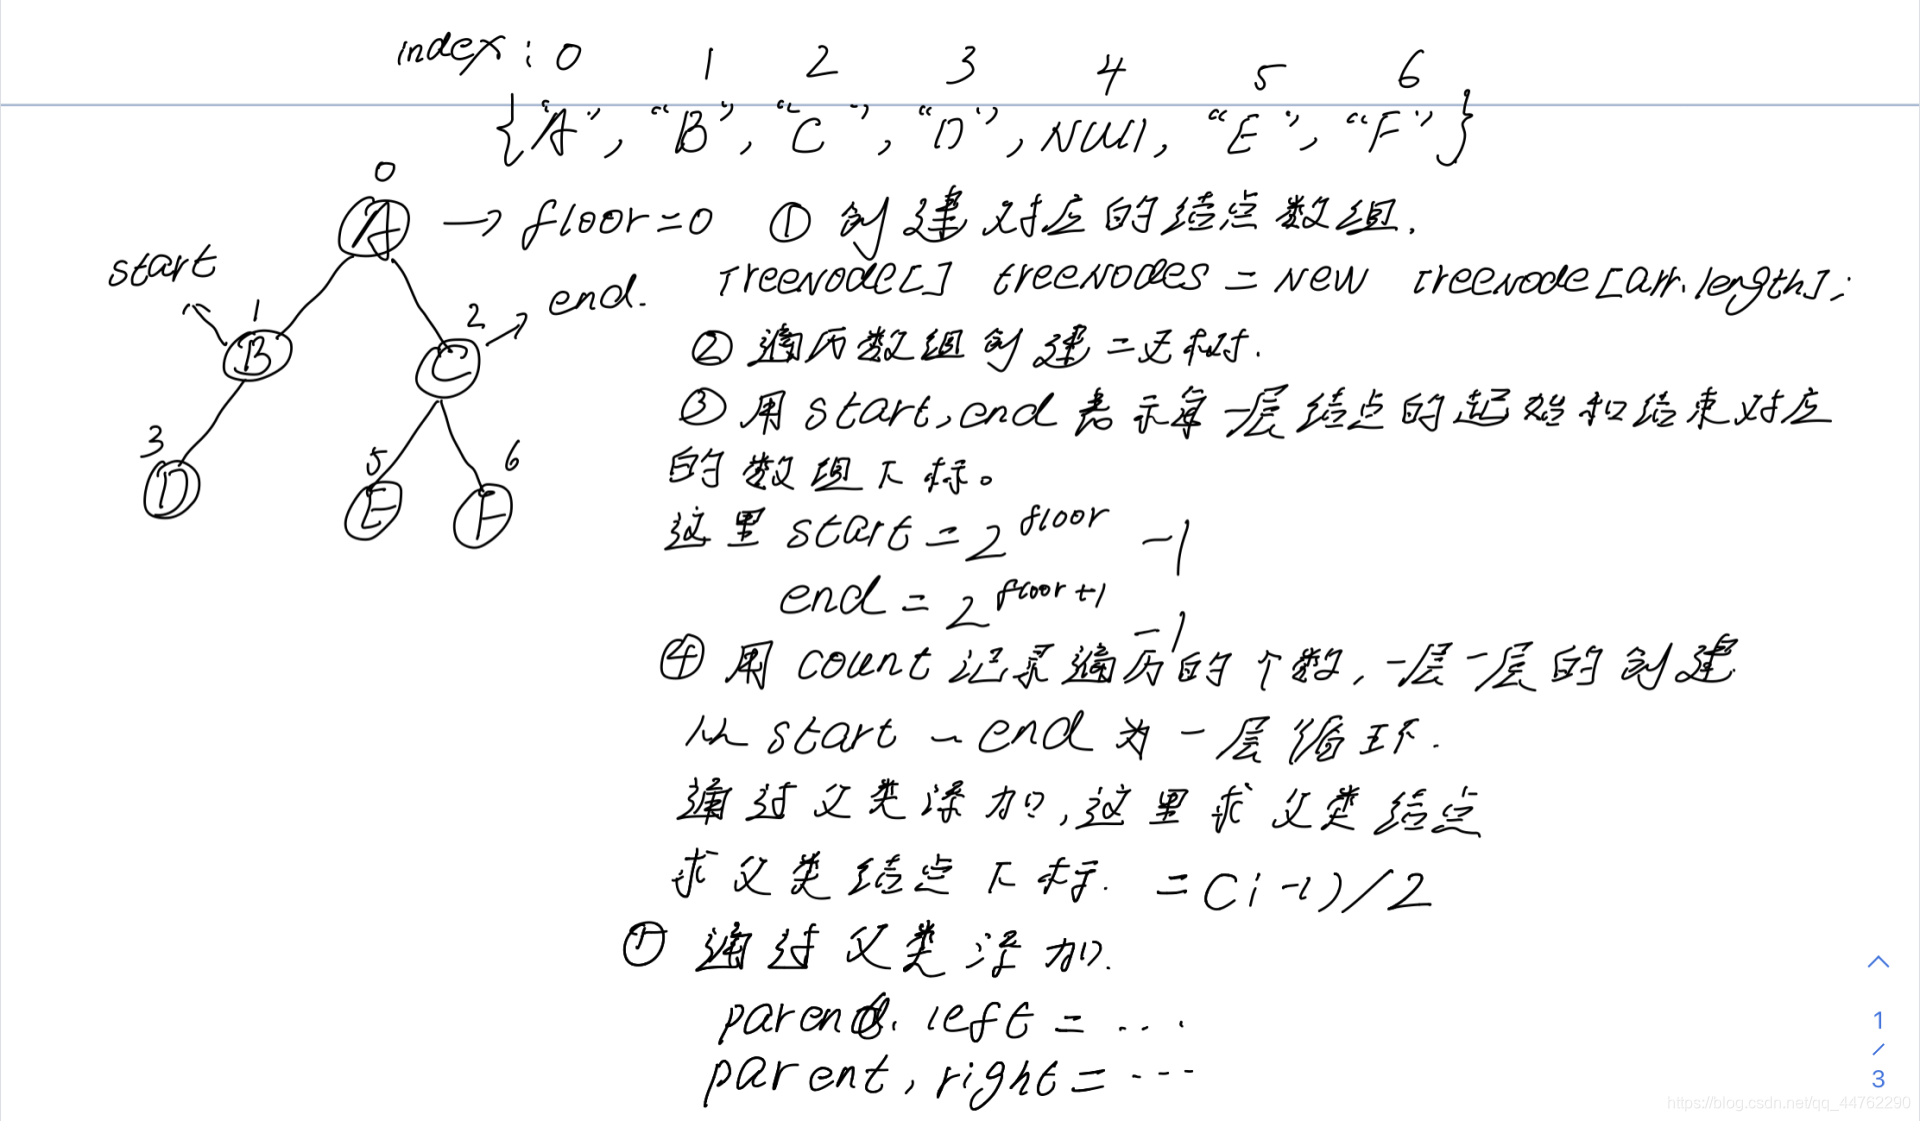 index : 0 1 2 3 4 5 6
{"A", "B", "C", "D", NULL, "E", "F"}
0
A → floor=0 ① 创建对应的结点数组.
start
end.
TreeNode[] treeNodes = New TreeNode[arr.length];
1 2
B C
② 遍历数组创建二叉树.
③ 用 start, end 表示每一层结点的起始和结束对应
的数组下标。
3 5 6
D E F
这里 start = 2^floor -1
end = 2^floor+1 -1
④ 用 count 记录遍历的个数, 一层一层的创建
从 start ~ end 为一层循环.
通过父类添加, 这里求父类结点
求父类结点下标. = (i-1)/2
通过父类添加.
parent. left = ...
parent, right = ...
1
/
3
https://blog.csdn.net/qq_44762290